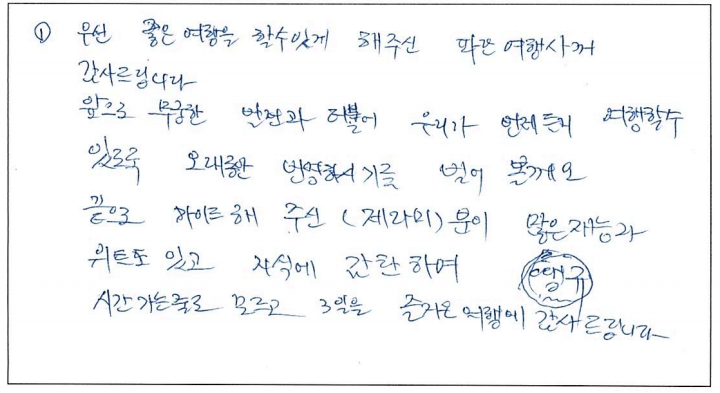 ① 우선 좋은 여행을 할수있게 해주신 파란 여행사께
감사르립니다
앞으로 무궁한 발전과 더불어 우리가 언제든지 여행할수
있도록 오래동안 번영하시기를 빌어 볼게요
끝으로 가이드해 주신 (제라미) 분이 많은 재능과
위트도 있고 지식에 감탄하여
시간가는줄도 모르고 3일을 즐거운 여행에 감사드립니다